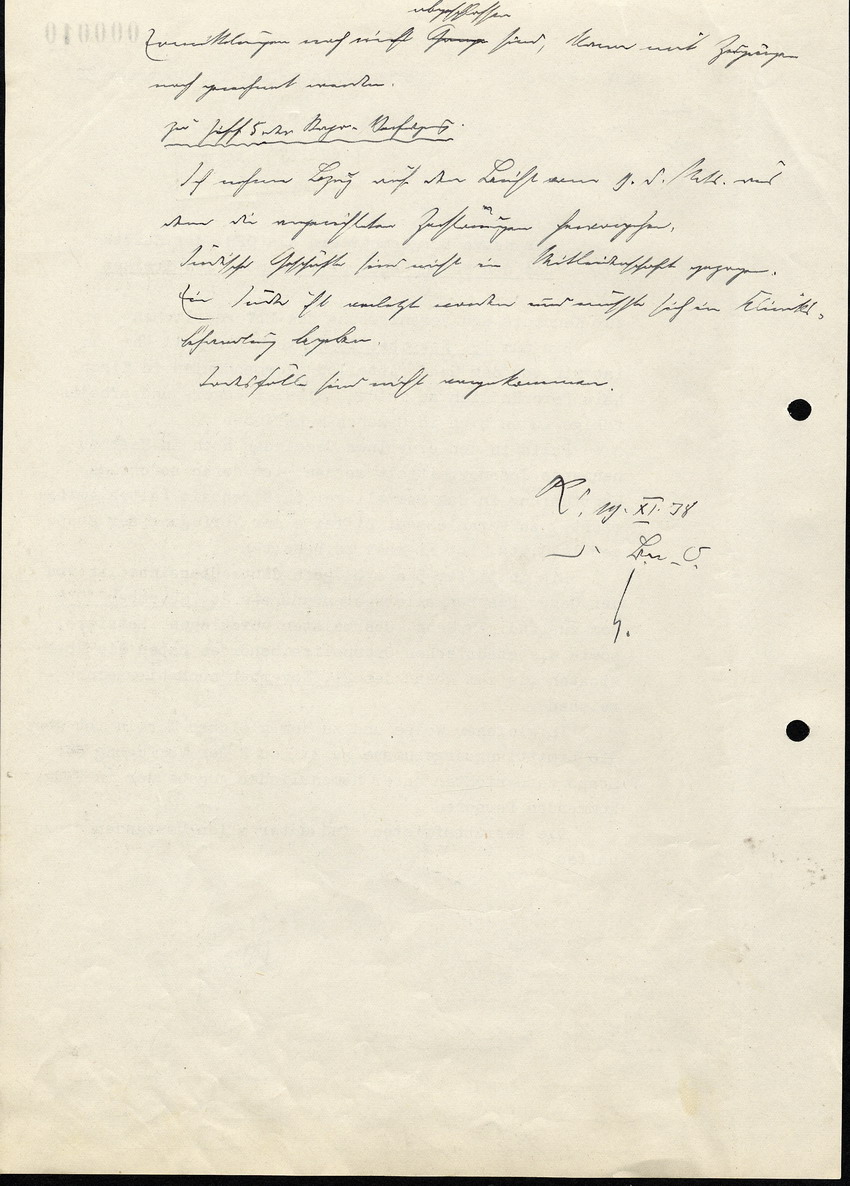 abgeschlossen
Ermittlungen noch nicht sind, kann mit Zugängen
noch gerechnet werden.
zu Ziff 5 der Regs.- Verfügg.
Ich nehme Bezug auf den Bericht vom d. Mts. aus
dem die angerichteten Zerstörungen hervorgehen.
Jüdische Geschäfte sind nicht in Mitleidenschaft gezogen.
Ein Jude ist verletzt worden und mußte sich in Kliniks-
behandlung begeben.
Todesfälle sind nicht vorgekommen.
K. XI. 38